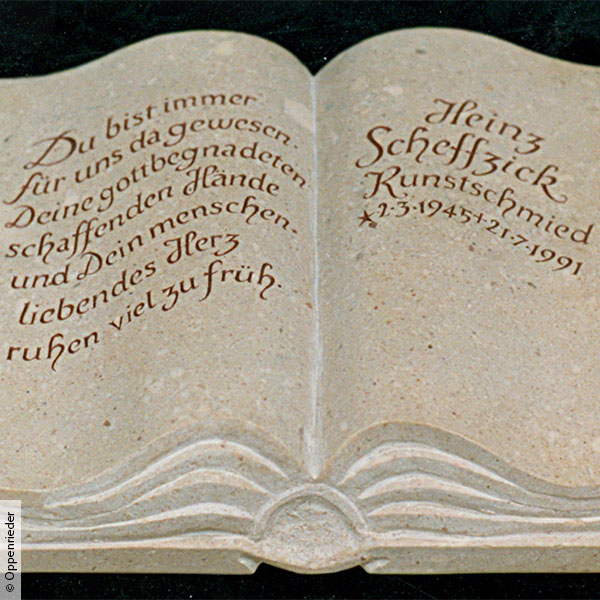 Du bist immer
für uns da gewesen.
Deine gottbegnadeten
schaffenden Hände
und Dein menschen-
liebendes Herz
ruhen viel zu früh.
Heinz
Scheffzick
Kunstschmied
*2·3·1945+21·7·1991
© Oppenrieder